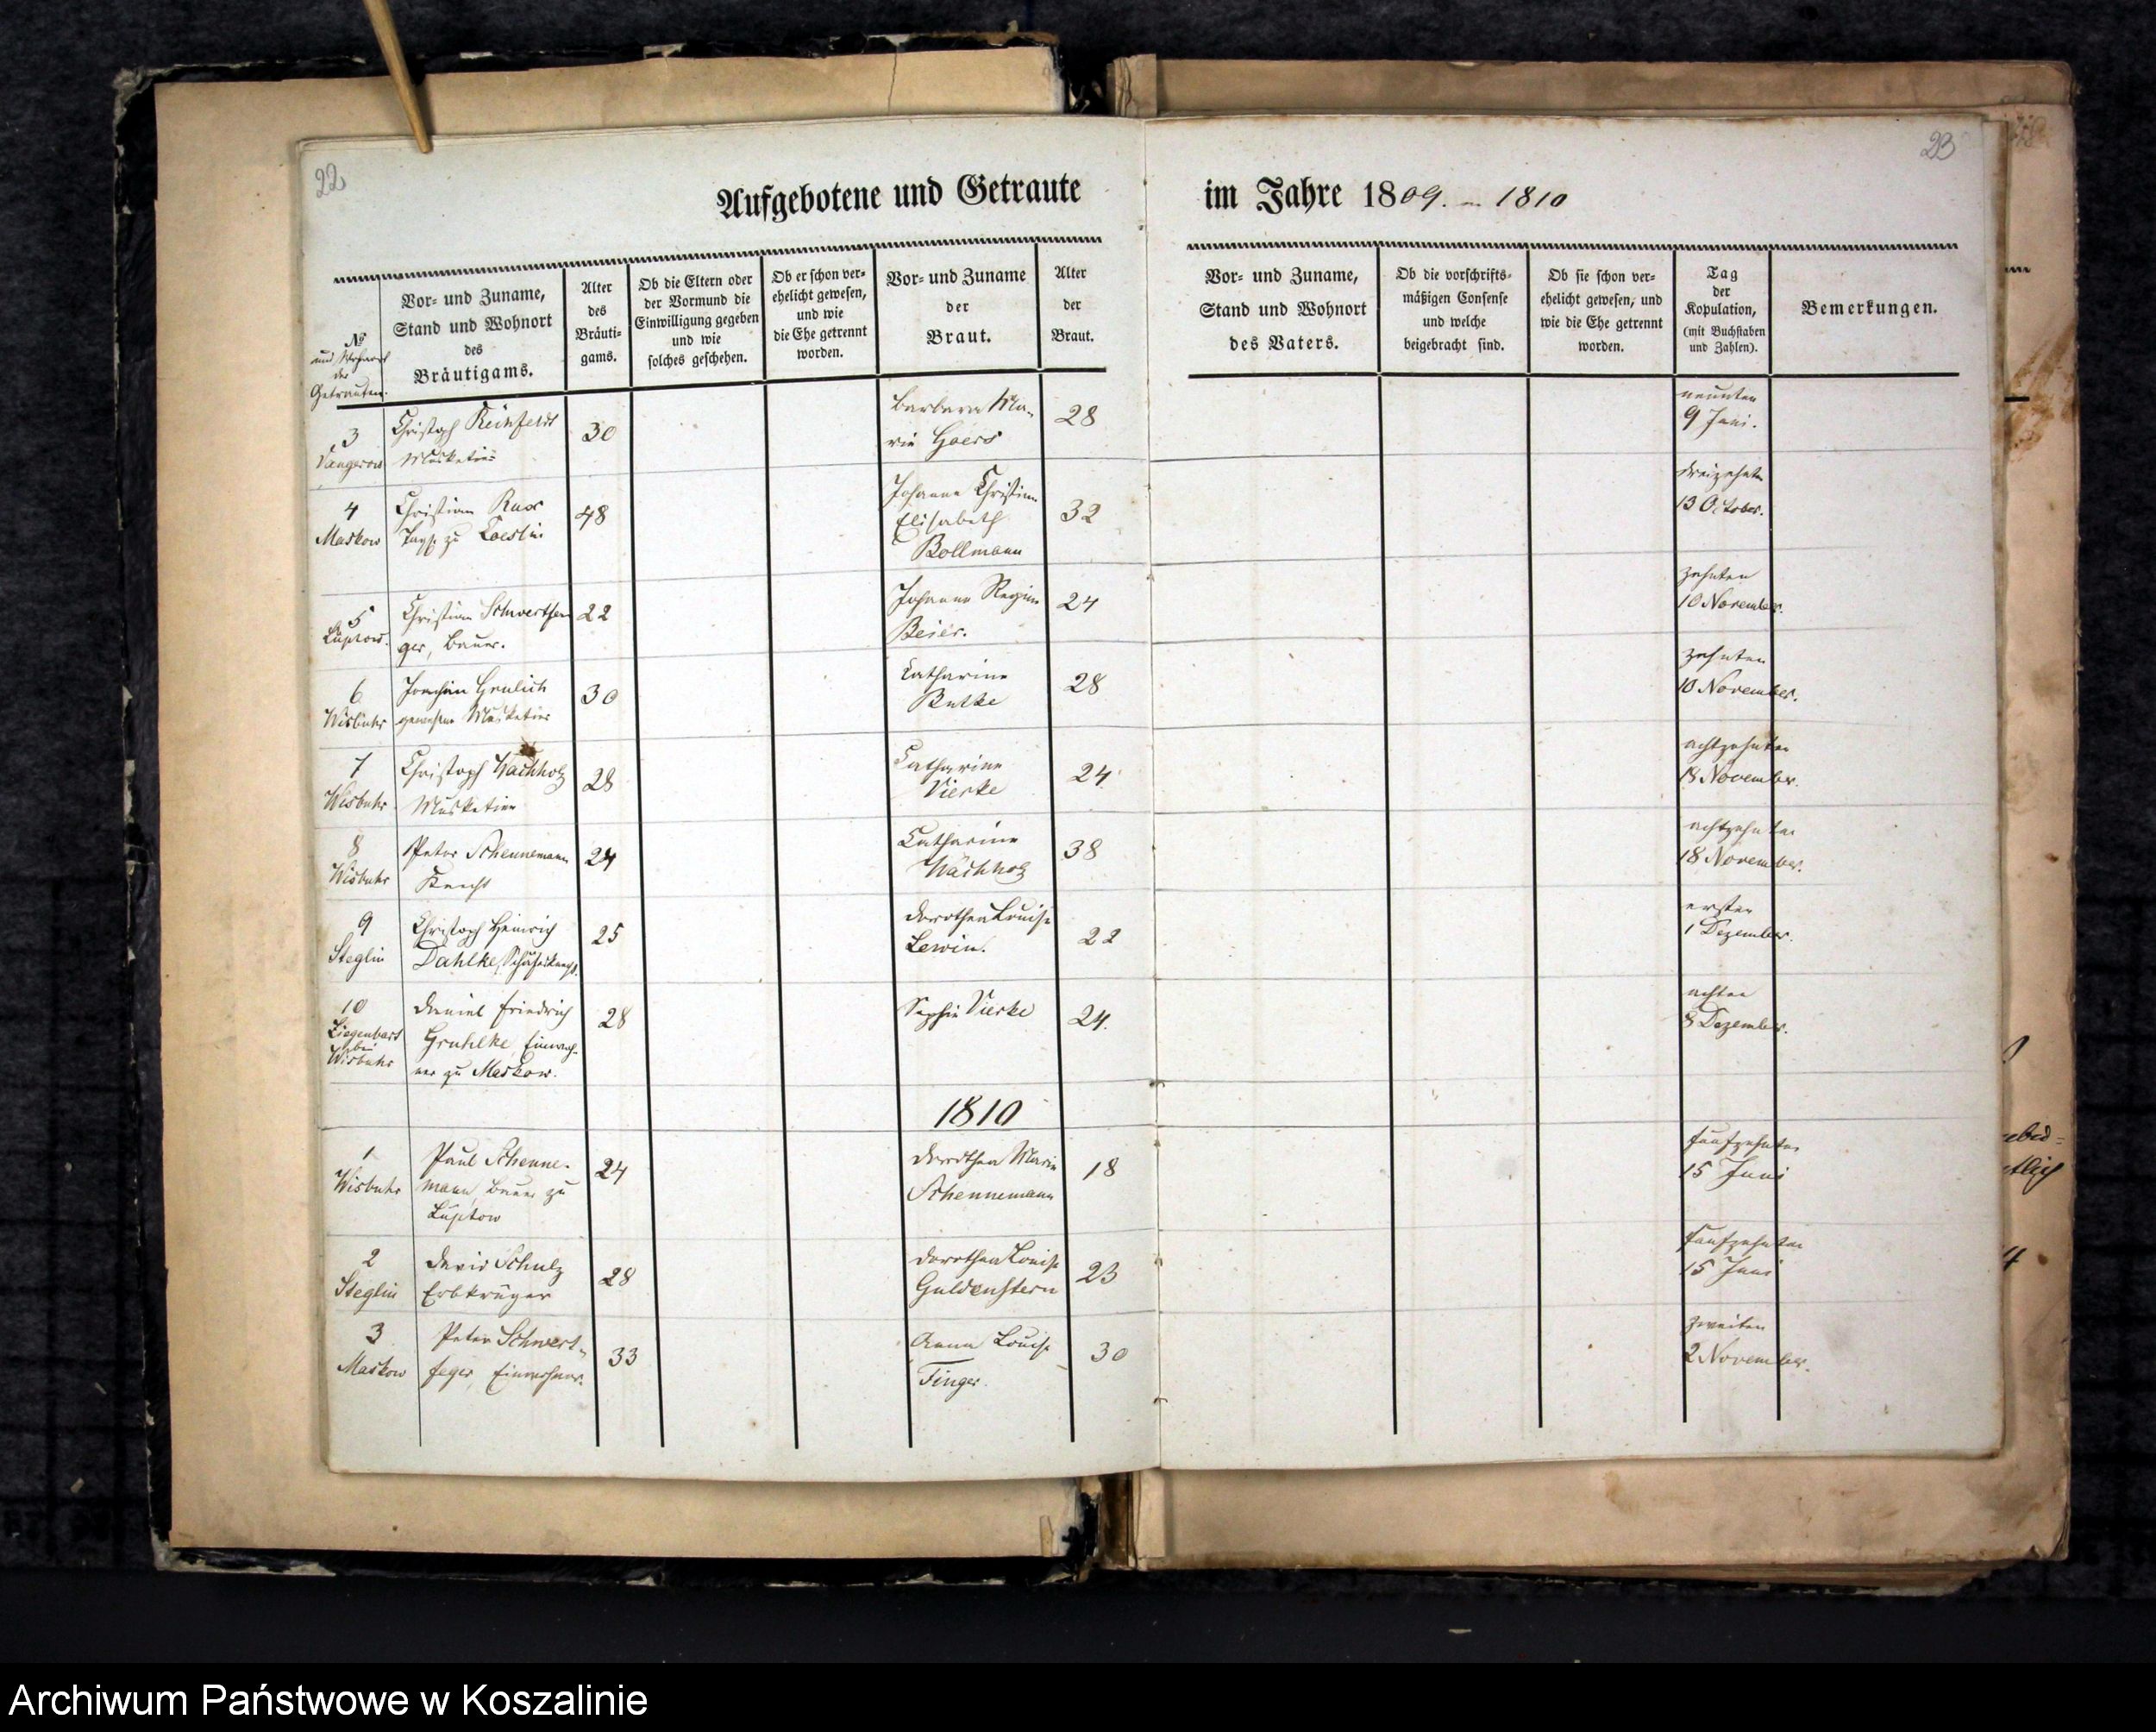 22
23
Aufgebotene und Getraute
im Jahre 1809. – 1810
№
und Wohnort
der
Getrauten.
Vor- und Zuname,
Stand und Wohnort
des
Bräutigams.
Alter
des
Bräuti-
gams.
Ob die Eltern oder
der Vormund die
Einwilligung gegeben
und wie
solches geschehen.
Ob er schon ver-
ehelicht gewesen,
und wie
die Ehe getrennt
worden.
Vor- und Zuname
der
Braut.
Alter
der
Braut.
Vor- und Zuname,
Stand und Wohnort
des Vaters.
Ob die vorschrifts-
mäßigen Consense
und welche
beigebracht sind.
Ob sie schon ver-
ehelicht gewesen, und
wie die Ehe getrennt
worden.
Tag
der
Kopulation,
(mit Buchstaben
und Zahlen).
Bemerkungen.
3
Vangerow
Christoph Reinfeldt
Musketier
30
Barbara Ma-
rie Goers
28
neunten
9 Juni.
4
Maskow
Christian Rux
zu Coeslin
48
Johanne Christine
Elisabeth
Bollmann
32
dreizehnten
13 October.
5
Lüptow.
Christian Schwertfe-
ger, Bauer.
22
Johanne Regine
Beier.
24
zehnten
10 November.
6
Wisbuhr
Joachim Grulich
gewesener Musketier
30
Catharine
Butke
28
zehnten
10 November.
7
Wisbuhr
Christoph Wachholz
Musketier
28
Catharine
Vierke
24
achtzehnten
18 November.
8
Wisbuhr
Peter Schennemann
Knecht
24
Catharine
Wachholz
38
achtzehnten
18 November.
9
Steglin
Christoph Heinrich
Dahlke, Schäferknecht.
25
Dorothea Louise
Lewin.
22
ersten
1 Dezember.
10
Ziegenbart
bei
Wisbuhr
Daniel Friedrich
Gruhlke, Einwoh-
ner zu Maskow.
28
Sophie Vierke
24.
achten
8 Dezember.
1810
1
Wisbuhr
Paul Schenne-
mann, Bauer zu
Lüptow
24
Dorothea Marie
Schennemann
18
fünfzehnten
15 Juni
2
Steglin
David Schulz
Erbkrüger
28
Dorothea Louise
Guldenstern
23
fünfzehnten
15 Juni
3
Maskow
Peter Schwert-
feger, Einwohner.
33
Anna Louise
Finger.
30
zweiten
2 November.
Archiwum Państwowe w Koszalinie